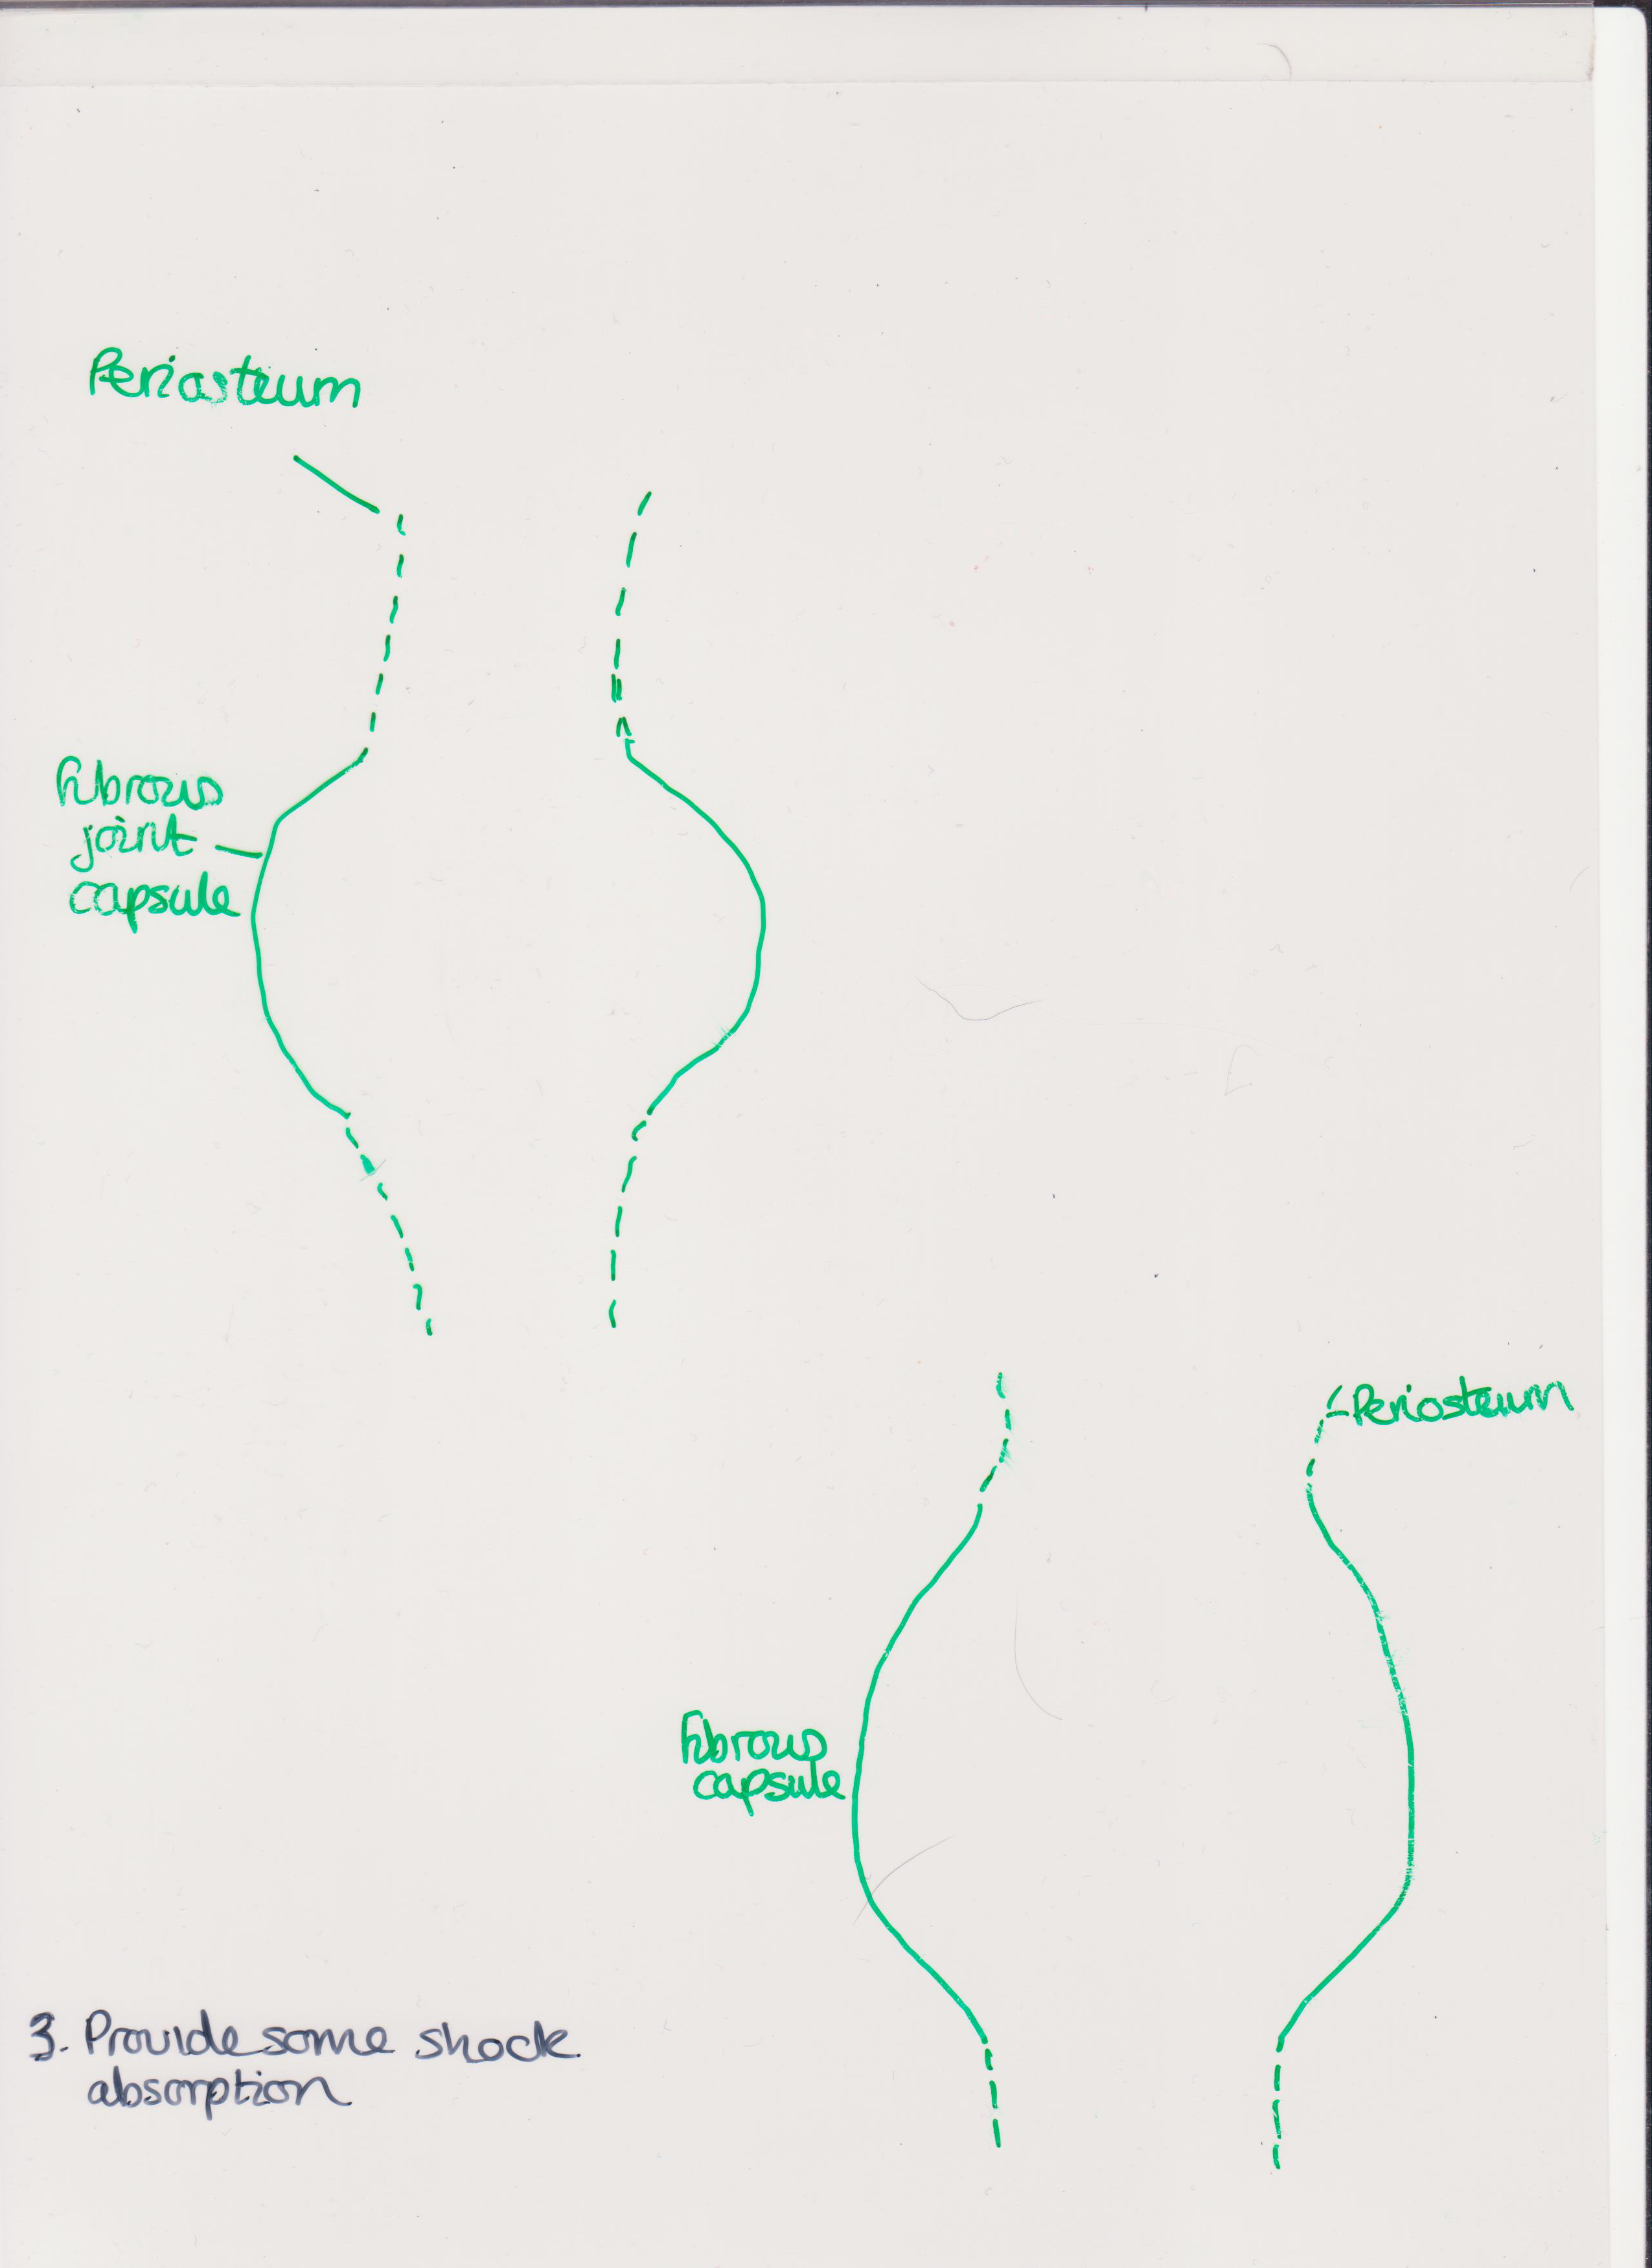 Periosteum
fibrous
joint
capsule
Periosteum
fibrous
capsule
3. Provide some shock
absorption